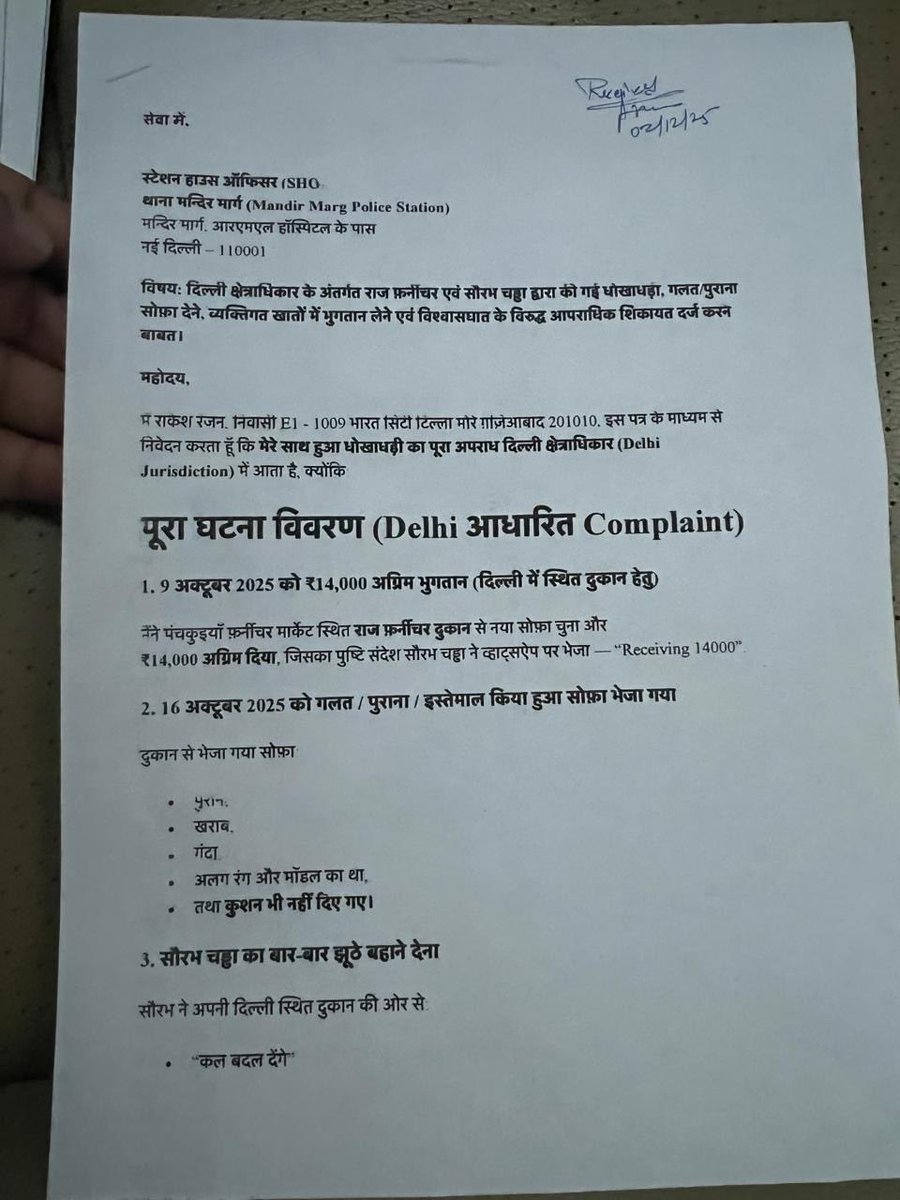 Received
02/12/25
सेवा में,
स्टेशन हाउस ऑफिसर (SHO
थाना मन्दिर मार्ग (Mandir Marg Police Station)
मन्दिर मार्ग, आरएमएल हॉस्पिटल के पास
नई दिल्ली – 110001
विषय: दिल्ली क्षेत्राधिकार के अंतर्गत राज फ़र्नीचर एवं सौरभ चड्ढा द्वारा की गई धोखाधड़ा, गलत/पुराना
सोफ़ा देने, व्यक्तिगत खातों में भुगतान लेने एवं विश्वासघात के विरुद्ध आपराधिक शिकायत दर्ज करन
बाबत।
महोदय,
म राकेश रंजन, निवासी E1 - 1009 भारत सिटी टिल्ला मोर ग़ाज़िआबाद 201010, इस पत्र के माध्यम से
निवेदन करता हूँ कि मेरे साथ हुआ धोखाधड़ी का पूरा अपराध दिल्ली क्षेत्राधिकार (Delhi
Jurisdiction) में आता है, क्योंकि
पूरा घटना विवरण (Delhi आधारित Complaint)
1. 9 अक्टूबर 2025 को ₹14,000 अग्रिम भुगतान (दिल्ली में स्थित दुकान हेतु)
मैंने पंचकुइयाँ फ़र्नीचर मार्केट स्थित राज फ़र्नीचर दुकान से नया सोफ़ा चुना और
₹14,000 अग्रिम दिया, जिसका पुष्टि संदेश सौरभ चड्ढा ने व्हाट्सऐप पर भेजा — “Receiving 14000”
2. 16 अक्टूबर 2025 को गलत / पुराना / इस्तेमाल किया हुआ सोफ़ा भेजा गया
दुकान से भेजा गया सोफ़ा
• पुराना,
• खराब,
• गंदा
• अलग रंग और मॉडल का था,
• तथा कुशन भी नहीं दिए गए।
3. सौरभ चड्ढा का बार-बार झूठे बहाने देना
सौरभ ने अपनी दिल्ली स्थित दुकान की ओर से
• “कल बदल देंगे”